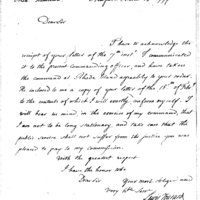 Dear Sir
I have to acknowledge the
receipt of your letter of the 7th inst. I communicated
it to the present commanding officer, and have taken
the command at Rhode Island agreeably to your order.
He delivered to me a copy of your letter of the 18th of Feby
to the contents of which I will strictly conform myself. I
will bear in mind, in the exercise of my command, that
I am not to be long stationary, and take care that the
public service shall not suffer from the justice you was
pleased to pay to my commission.
With the greatest respect
I have the honor to be
Dear Sir
Your most obliged and
very H. Serv.